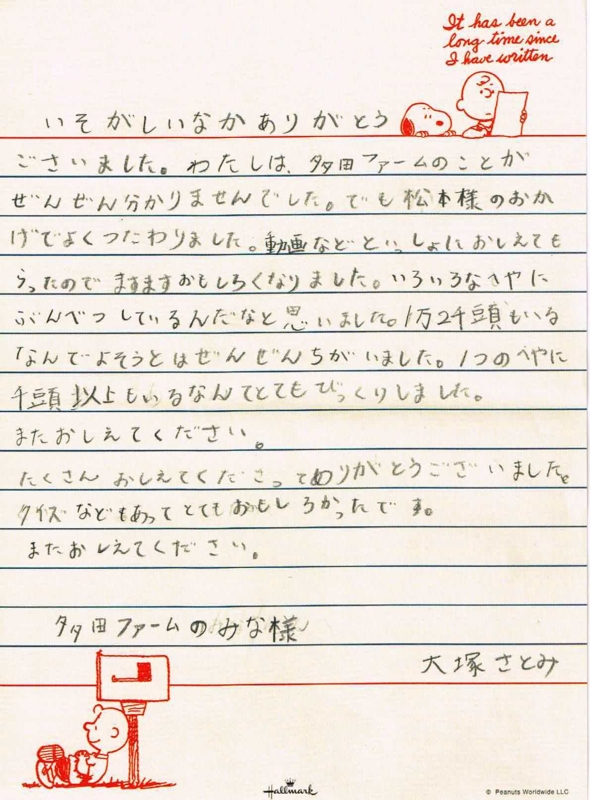 It has been a
long time since
I have written
いそがしいなかありがとう
ございました。わたしは、多田ファームのことが
ぜんぜん分かりませんでした。でも松本様のおか
げでよくつたわりました。動画などといっしょにおしえても
らったのでますますおもしろくなりました。いろいろなへやに
ぶんべつしているんだなと思いました。1万2千頭もいる
なんてよそうとはぜんぜんちがいました。1つのへやに
千頭以上もいるなんてとてもびっくりしました。
またおしえてください。
たくさんおしえてくださってありがとうございました。
クイズなどもあってとてもおもしろかったです。
またおしえてください。
多田ファームのみな様
大塚さとみ
Hallmark
© Peanuts Worldwide LLC